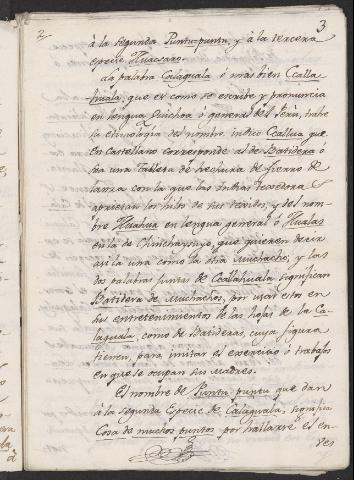 2 3
à la segunda Puntu-puntu, y à la tercera
especie Huacsaro.
La palabra Calaguala ò mas bien Ccalla-
huala, que es como se escribe y pronuncia
en lengua Quichoa ò general del Perù, trahe
la etimologia del nombre indico Ccallua que
en Castellano corresponde al de Batidera ò
sea una Tablera de hechura de fierro de
lanza con la que las Indias texedoras
aprietan los hilos de sus texidos, y del nom-
bre Huahua en lengua general ò Hualas
en la de Chinchaysuyo, que quieren decir
asi la una como la otra Muchacho; y las
dos palabras juntas de Ccallahuala significan
Batidera de Muchachos, por usar estos en
sus entretenimientos de las hojas de la Ca-
laguala, como de Batideras, cuya figura
tienen, para imitar el exercicio ò trabajos
en que se ocupan sus madres.
El nombre de Puntu-puntu que dan
à la segunda Especie de Calaguala, significa
Cosa de muchos puntos por hallarse el en-
ves